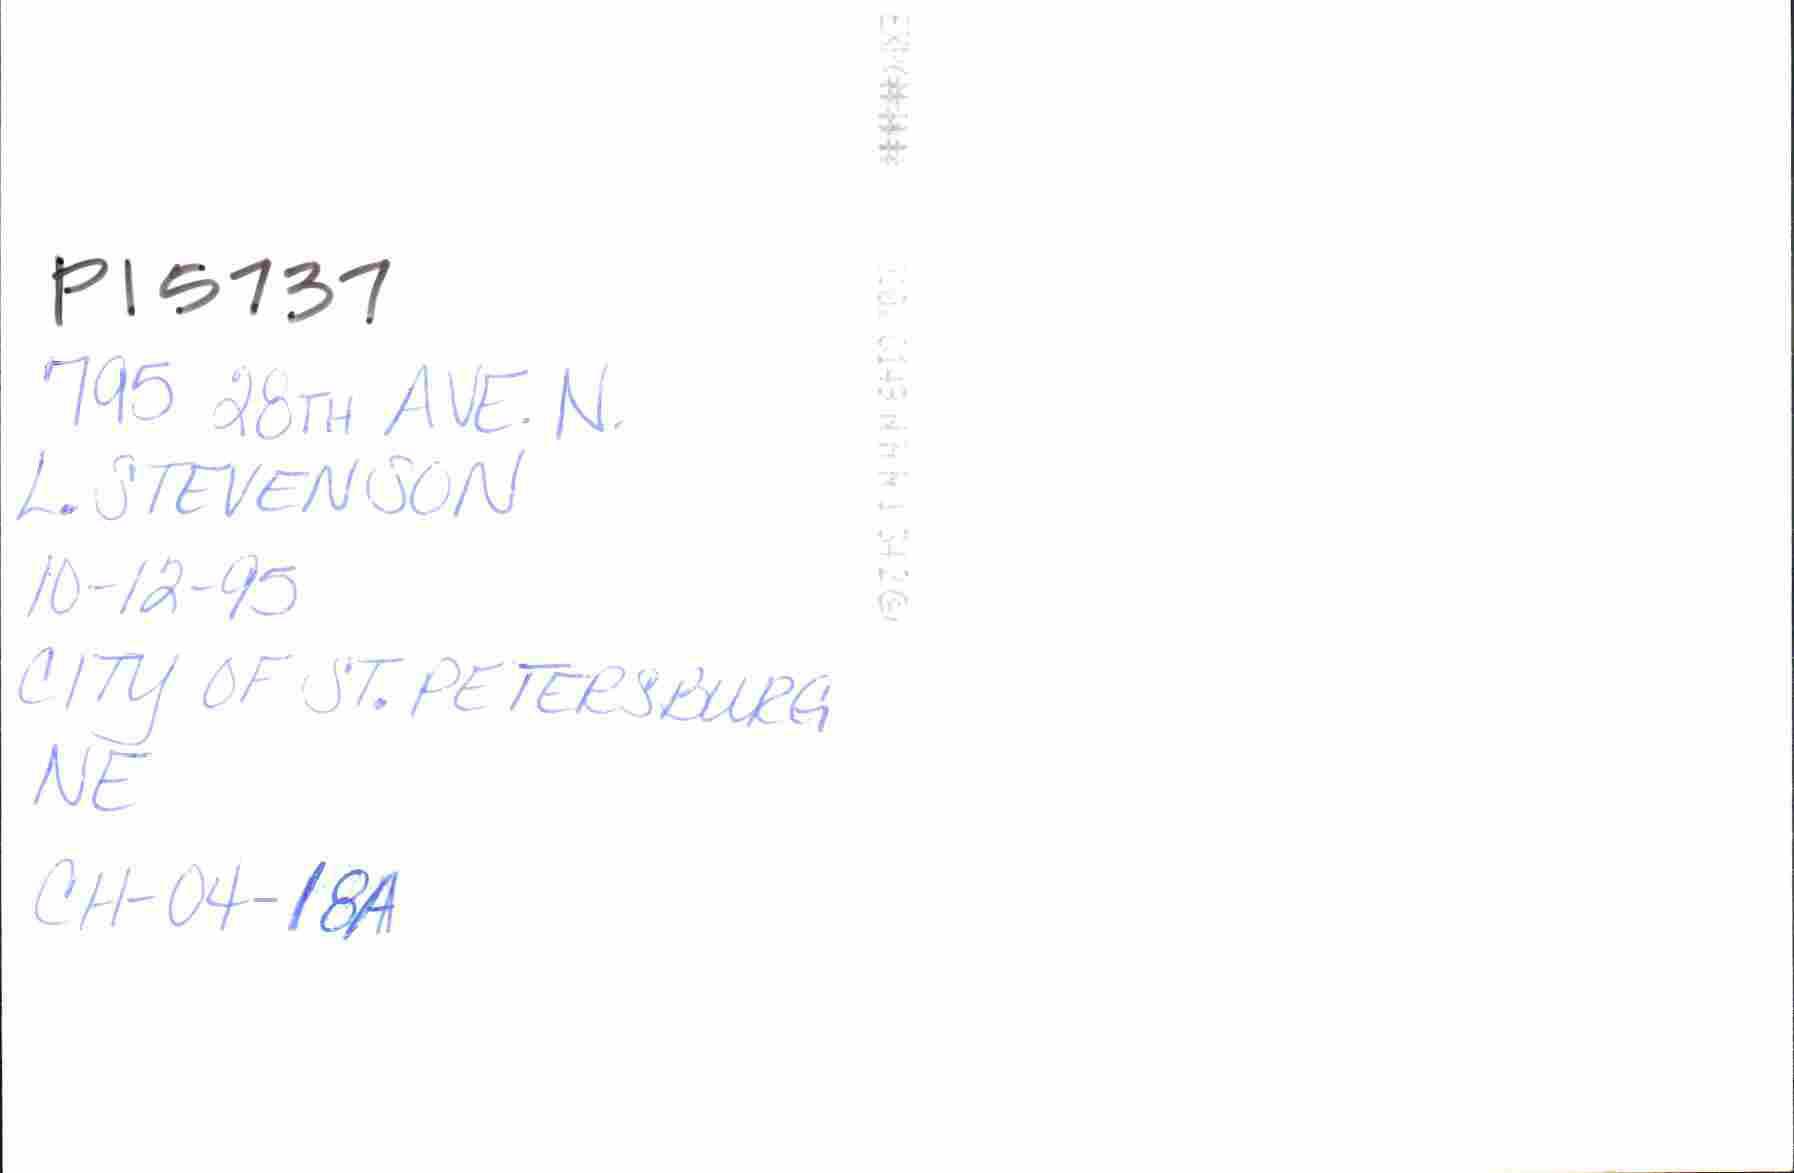 PI5737
795 28TH AVE. N.
L. STEVENSON
10-12-95
CITY OF ST. PETERSBURG
NE
CH-04-18A